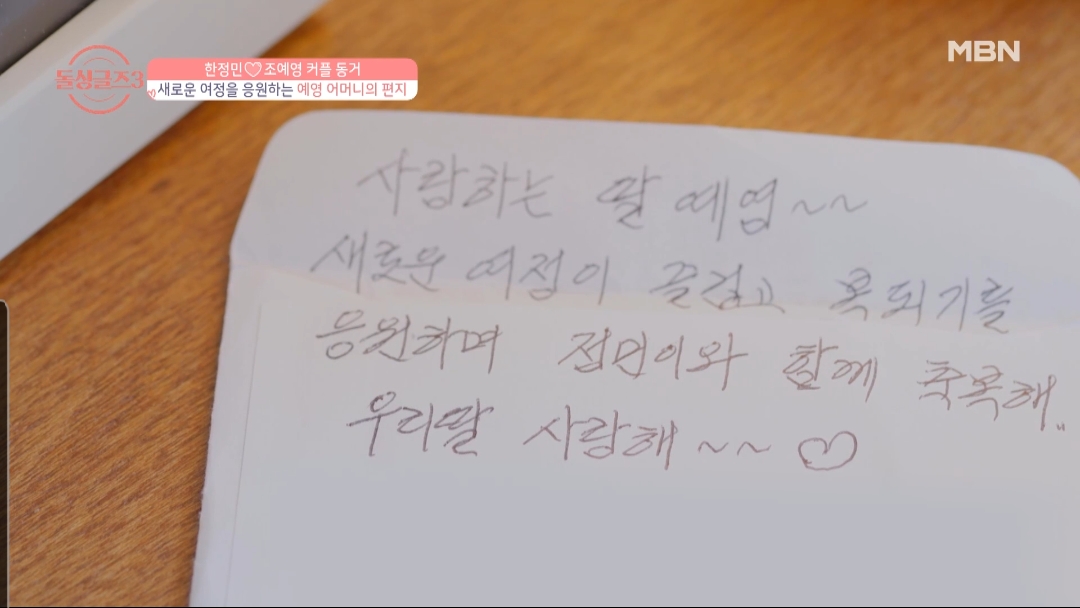 MBN
돌싱글즈3
한정민♡조예영 커플 동거
새로운 여정을 응원하는 예영 어머니의 편지
사랑하는 딸 예영~~
새로운 여정이 즐겁고 복되기를
응원하며 정민이와 함께 축복해..
우리딸 사랑해~~♡